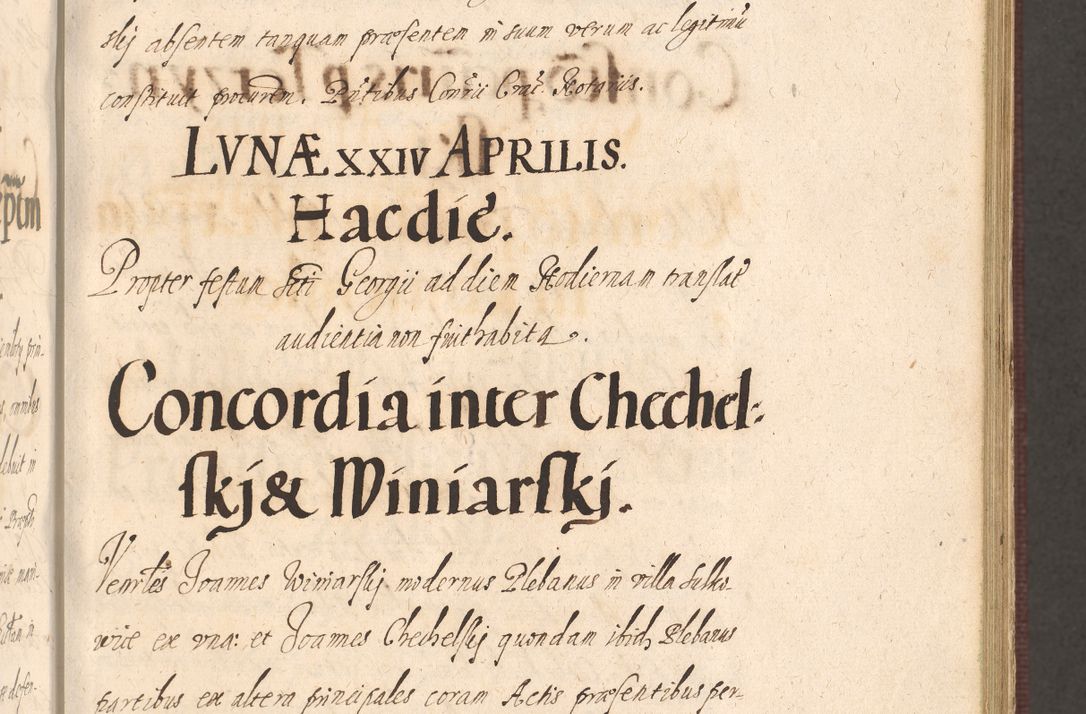 skij absentem tanquam præsentem in suum verum ac legitimũ
constituit procũrem. Pñtibus Conrii Crac. Notariis.
LVNÆ XXIV APRILIS.
Hac die.
Propter festum Sti Georgii ad diem Hodiernam translat
audientia non fuit habita.
Concordia inter Chechel-
skj & Winiarskj.
Venrles Joannes Winiarskij modernus Plebanus in villa Sulko-
wice ex vna: et Joannes Chechelskij quondam ibid Plebanus
partibus ex altera principales coram Actis præsentibus per-